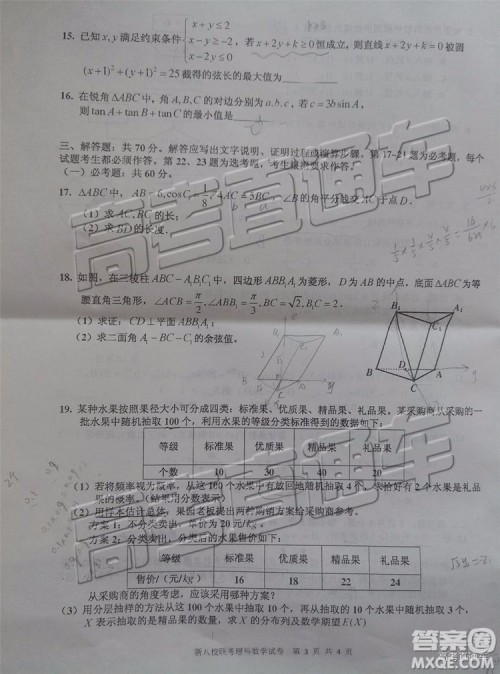 15. 已知x,y满足约束条件 { x+y≤2 x-y≥-2 x-2y≤0 若x+2y+k≥0恒成立,则直线x+2y+k=0被圆
(x+1)²+(y+1)²=25截得的弦长的最大值为
16. 在锐角ΔABC中,角A,B,C的对边分别为a,b,c,若c=3bsinA,
则tanA+tanB+tanC的最小值是
三、解答题:共70分。解答应写出文字说明、证明过程或演算步骤。第17-21题为必考题,每个
试题考生都必须作答。第22、23题为选考题,考生根据要求作答。
(一)必考题:共60分。
17. ΔABC中,AB=6,cosC=1/8,4AC=5BC,∠B的角平分线交AC于点D.
(1)求AC,BC的长;
(2)求BD的长.
18. 如图,在三棱柱ABC-A₁B₁C₁中,四边形ABB₁A₁为菱形,D为AB的中点,底面ΔABC为等
腰直角三角形,∠ACB=π/2,∠ABB₁=π/3,BC=√2,B₁C=2.
(1)求证:CD⊥平面ABB₁A₁;
(2)求二面角A₁-BC-C₁的余弦值.
B₁ A₁ C₁
B D A
C
19. 某种水果按照果径大小可分成四类:标准果、优质果、精品果、礼品果,某采购商从采购的一
批水果中随机抽取100个,利用水果的等级分类标准得到的数据如下:
等级 标准果 优质果 精品果 礼品果
个数 10 30 40 20
(1)若将频率视为概率,从这100个水果中有放回地随机抽取4个,求恰好有2个水果是礼品
果的概率。(结果用分数表示)
(2)用样本估计总体,果园老板提出两种购销方案给采购商参考。
方案1:不分类卖出,单价为20元/kg.
方案2:分类卖出,分类后的水果售价如下:
等级 标准果 优质果 精品果 礼品果
售价/(元/kg) 16 18 22 24
从采购商的角度考虑,应该采用哪种方案?
(3)用分层抽样的方法从这100个水果中抽取10个,再从抽取的10个水果中随机抽取3个,
X表示抽取的是精品果的数量,求X的分布列及数学期望E(X)
新八校联考理科数学试卷 第3页共4页
高考直通车
高考直通车
高考直通车
答案圈
MXQE.COM